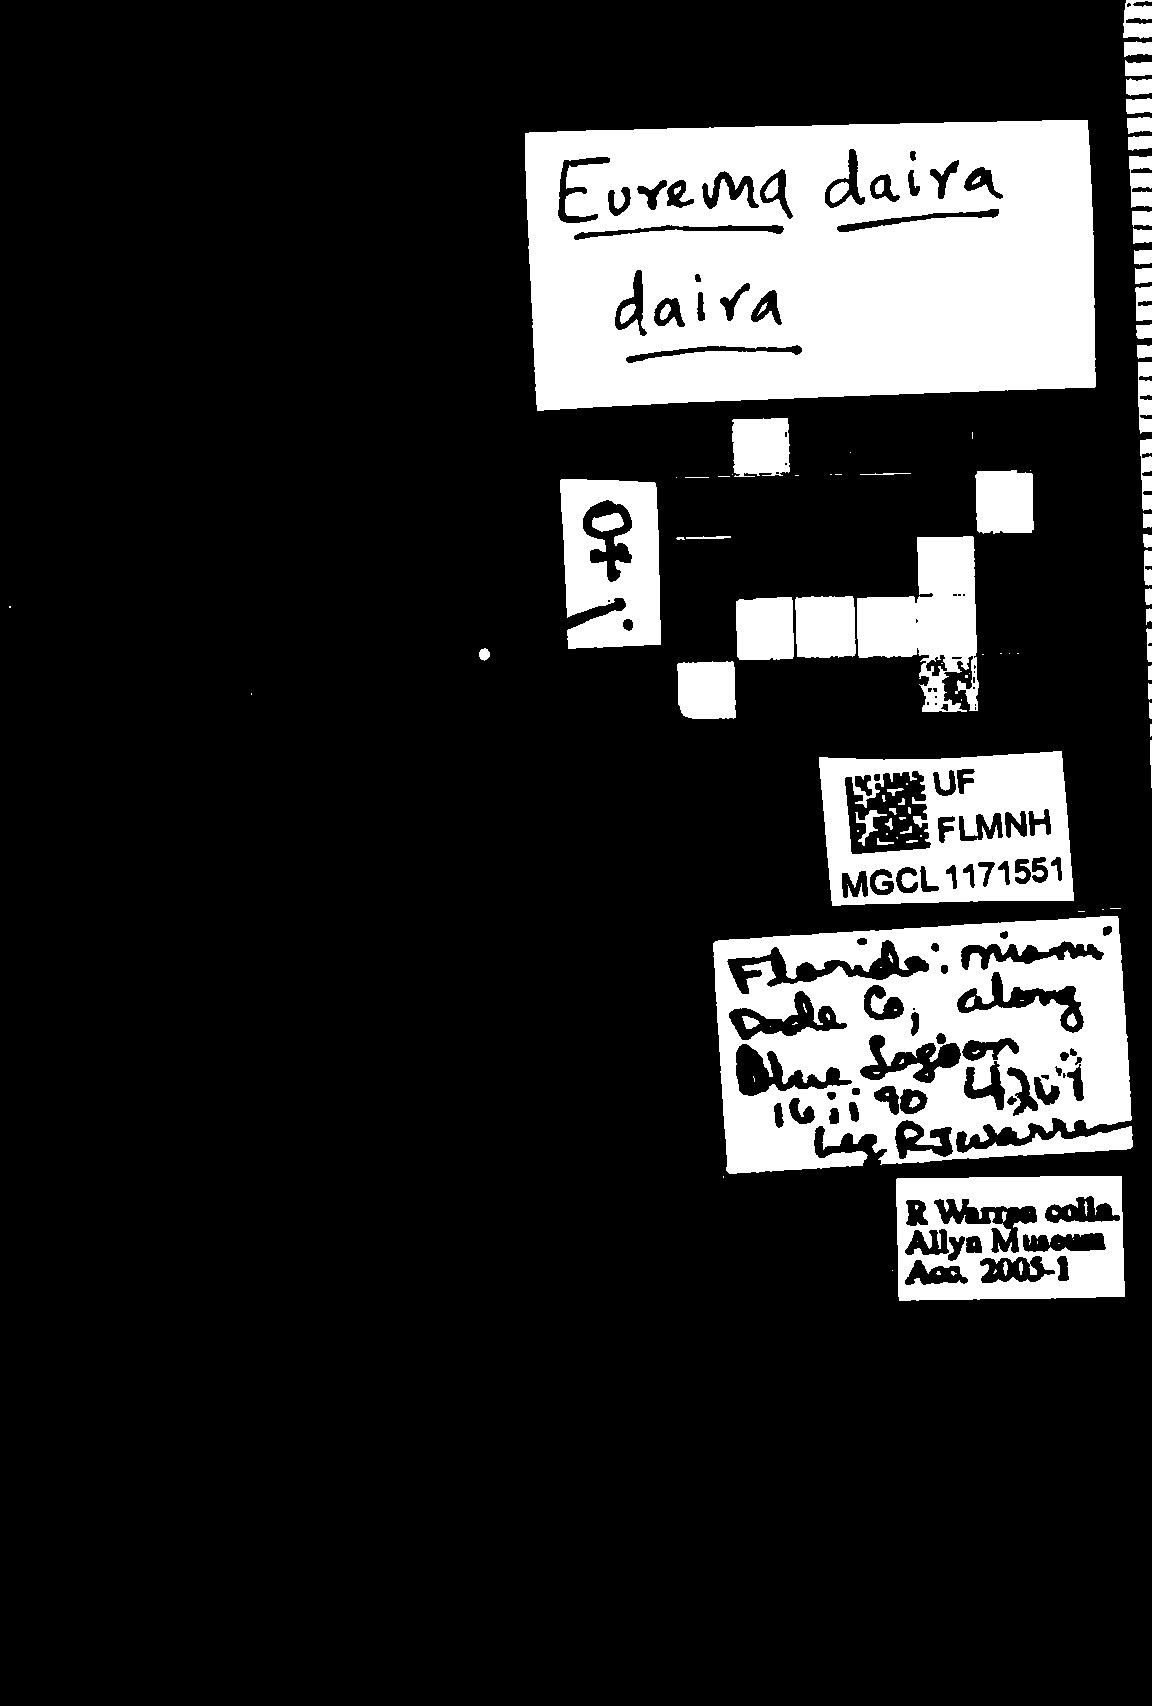 Eurema daira
daira
♀
UF
FLMNH
MGCL 1171551
Florida: miami
Dade Co, along
Blue Lagoon
16 ii 90
Leg RJ Warren
R Warren colln.
Allyn Museum
Acc. 2005-1